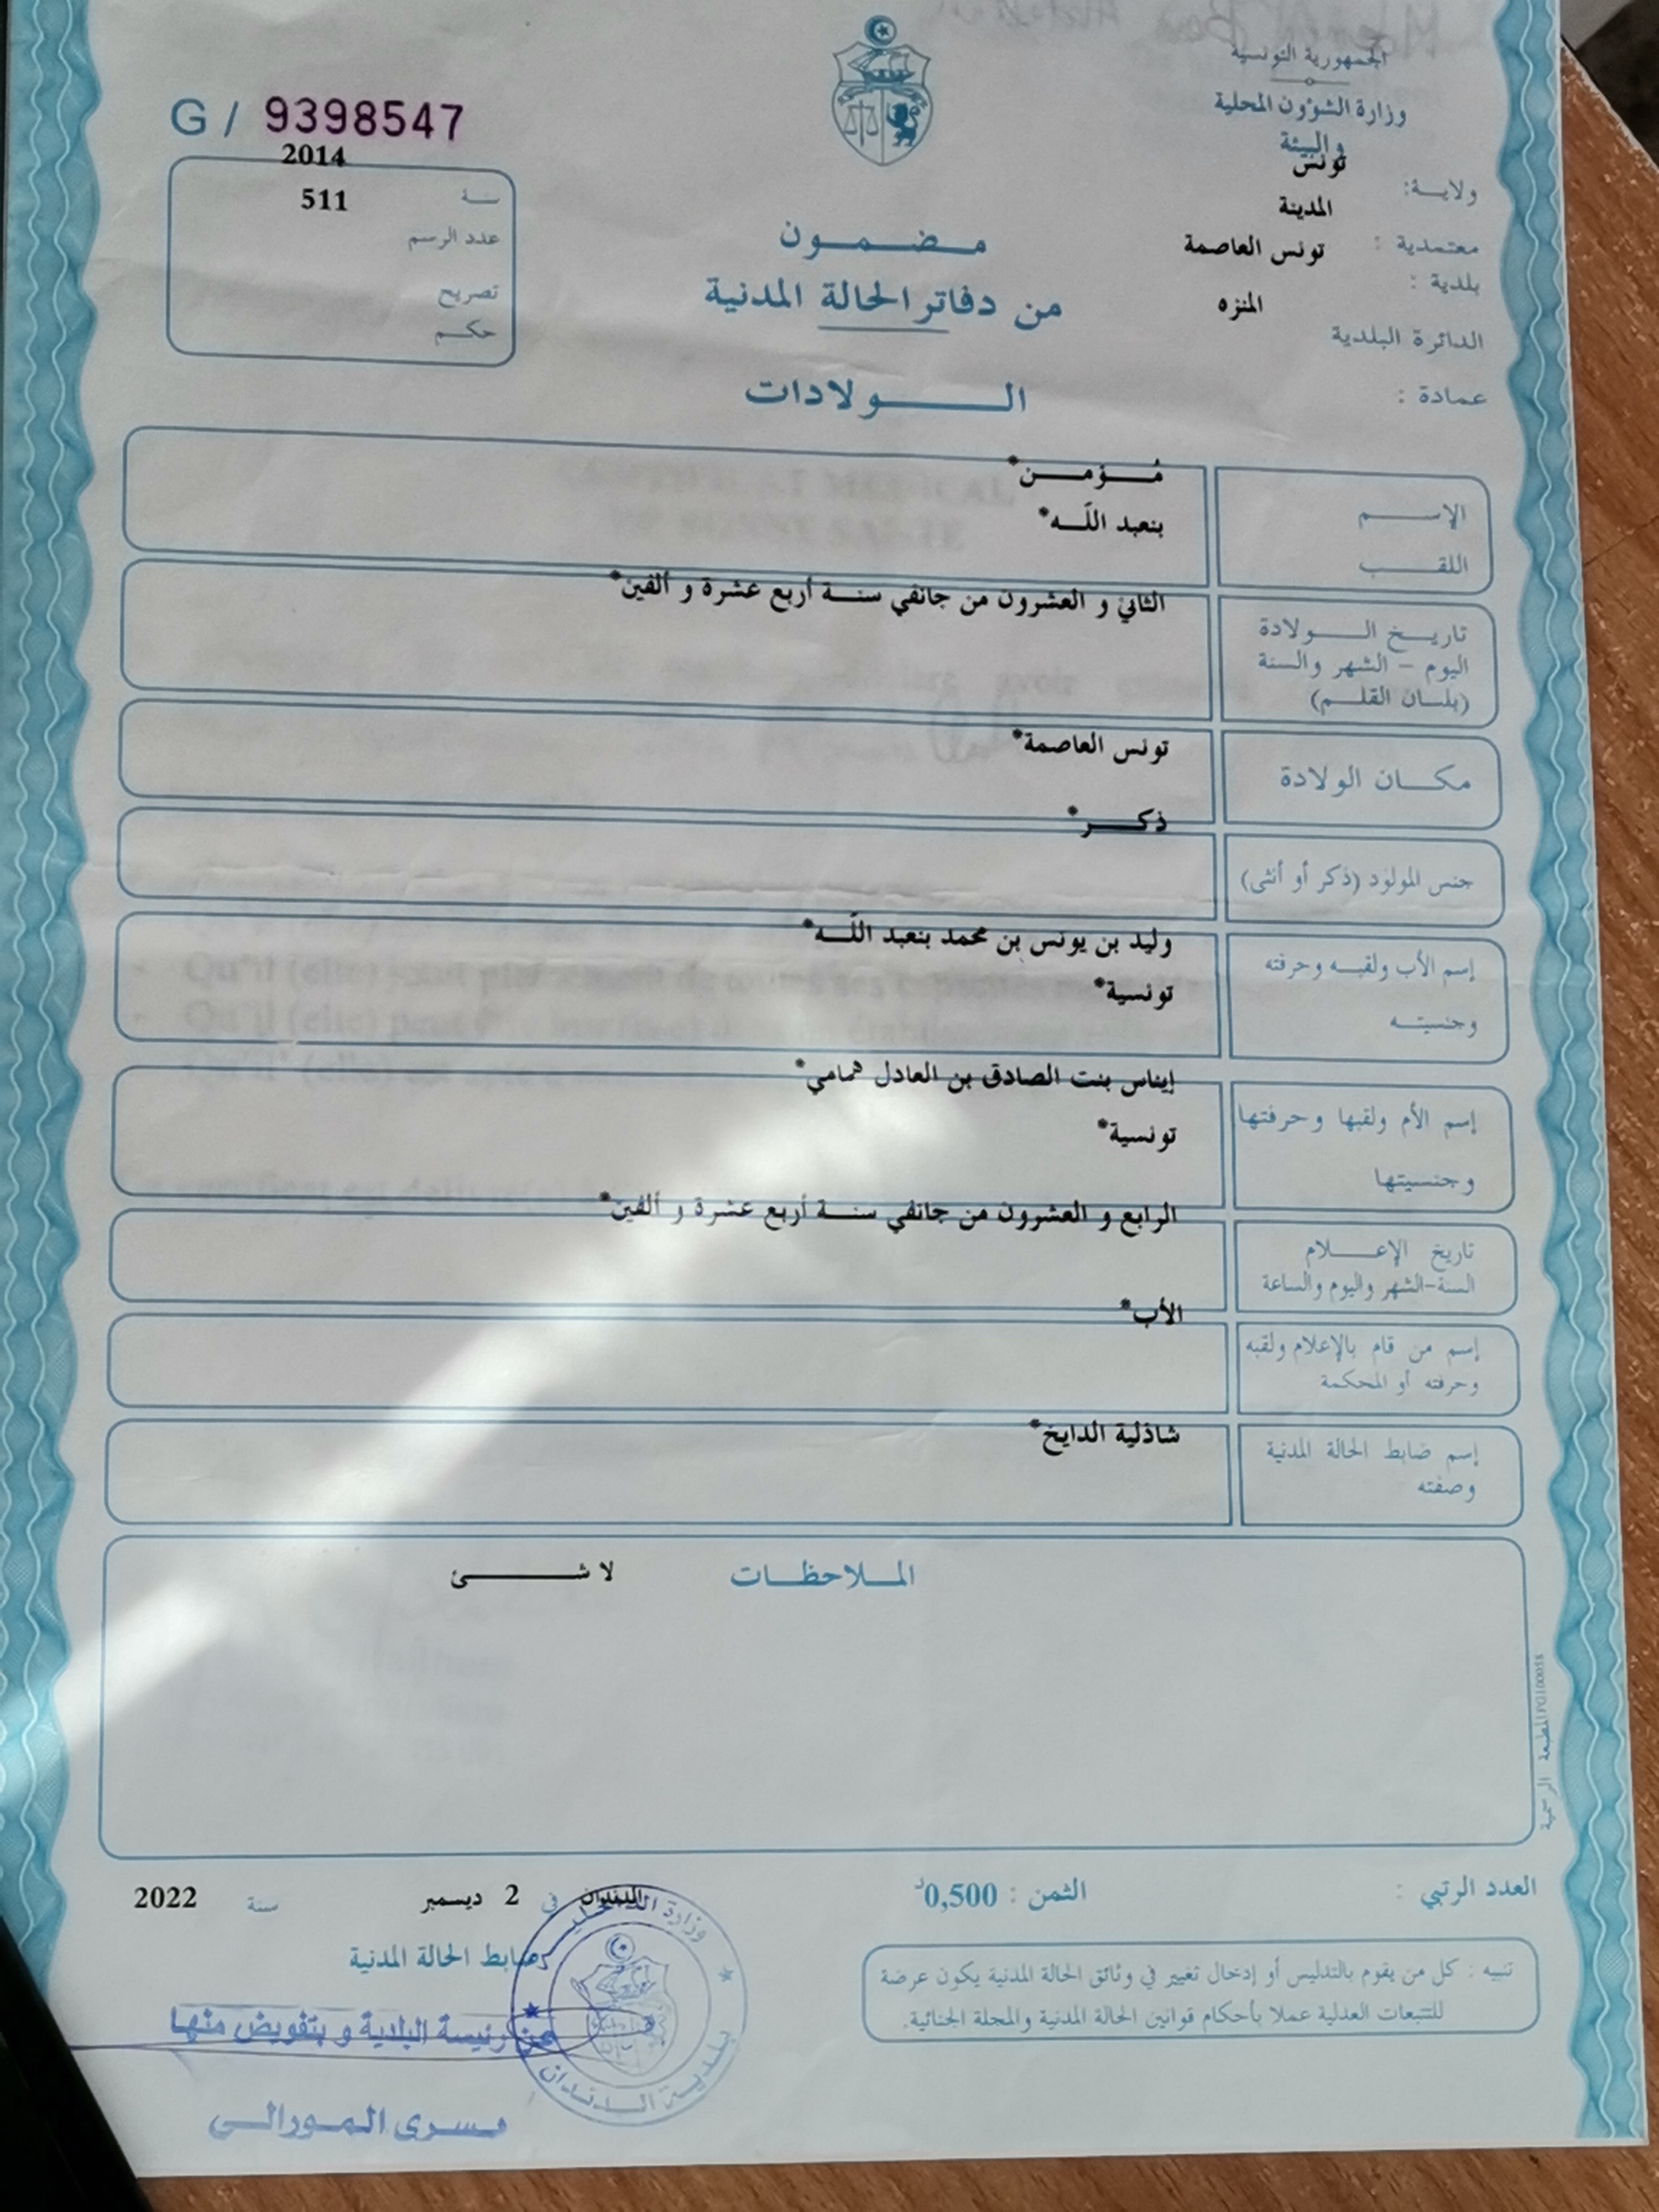 الجمهورية التونسية
وزارة الشؤون المحلية
والبيئة
ولاية: تونس
معتمدية : المدينة
بلدية : تونس العاصمة
الدائرة البلدية المنزه
عمادة :
G / 9398547
سنة 2014
عدد الرسم 511
تصريح
حكم
مضمون
من دفاتر الحالة المدنية
الولادات
الإسم مُؤمن*
اللقب بنعبد اللّه*
تاريخ الولادة
اليوم - الشهر والسنة
(بلسان القلم)
الثاني و العشرون من جانفي سنة أربع عشرة و ألفين*
مكان الولادة تونس العاصمة*
جنس المولود (ذكر أو أنثى) ذكر*
إسم الأب ولقبه وحرفته
وجنسيته
وليد بن يونس بن محمد بنعبد اللّه*
تونسية*
إسم الأم ولقبها وحرفتها
وجنسيتها
إيناس بنت الصادق بن العادل همامي*
تونسية*
تاريخ الإعلام
السنة-الشهر واليوم والساعة
الرابع و العشرون من جانفي سنة أربع عشرة و ألفين*
إسم من قام بالإعلام ولقبه
وحرفته أو المحكمة
الأب*
إسم ضابط الحالة المدنية
وصفته
شاذلية الدايخ*
الملاحظات لا شئ
المطبعة الرسمية
العدد الرتبي :
الثمن : 0,500د
الدندان في 2 ديسمبر سنة 2022
ضابط الحالة المدنية
تنبيه : كل من يقوم بالتدليس أو إدخال تغيير في وثائق الحالة المدنية يكون عرضة
للتتبعات العدلية عملا بأحكام قوانين الحالة المدنية والمجلة الجنائية.
عن رئيسة البلدية و بتفويض منها
يسرى المورالي
وزارة الداخلية
بلدية الدندان